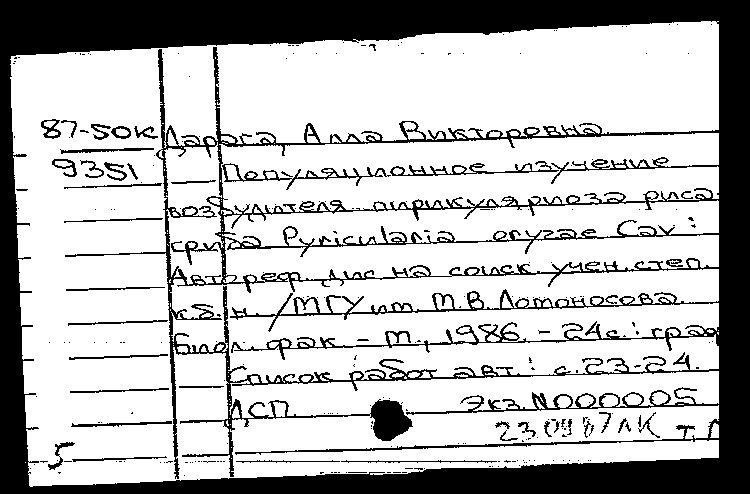 87-50К Дарага, Алла Викторовна
9351 Популяционное изучение
возбудителя пирикуляриоза риса
гриба Pyricularia oryzae Cav :
Автореф. дис на соиск. учен. степ.
к.б.н. /МГУ им. М.В. Ломоносова.
Биол. фак. - М., 1986. - 24с. : граф
Список работ авт. : с.23-24.
ДСП. Экз. N000005
23 09 87 ЛК
5